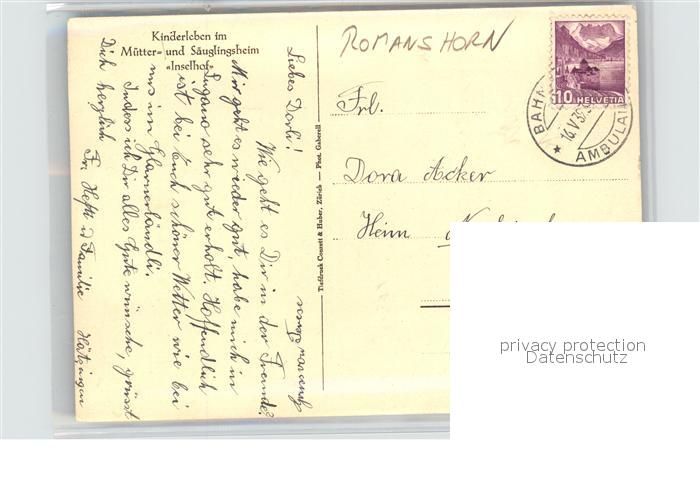 Kinderleben im
Mütter- und Säuglingsheim
«Inselhof»
ROMANSHORN
10 HELVETIA
BAHN
16.V.39
AMBULAN
Frl.
Dora Acker
Heim
Tiefdruck Conzett & Huber, Zürich — Phot. Gaberell
Liebes Dorli!
Wie geht es Dir in der Fremde?
Mir geht es wieder gut, habe mich in
Lugano sehr gut erholt. Hoffendlich
ist bei Euch schöner Wetter wie bei
uns im Glarnerländli.
Indess ich Dir alles Gute wünsche, grüsst
Dich herzlich
Fr. Hefti u Familie Hätzingen
privacy protection
Datenschutz